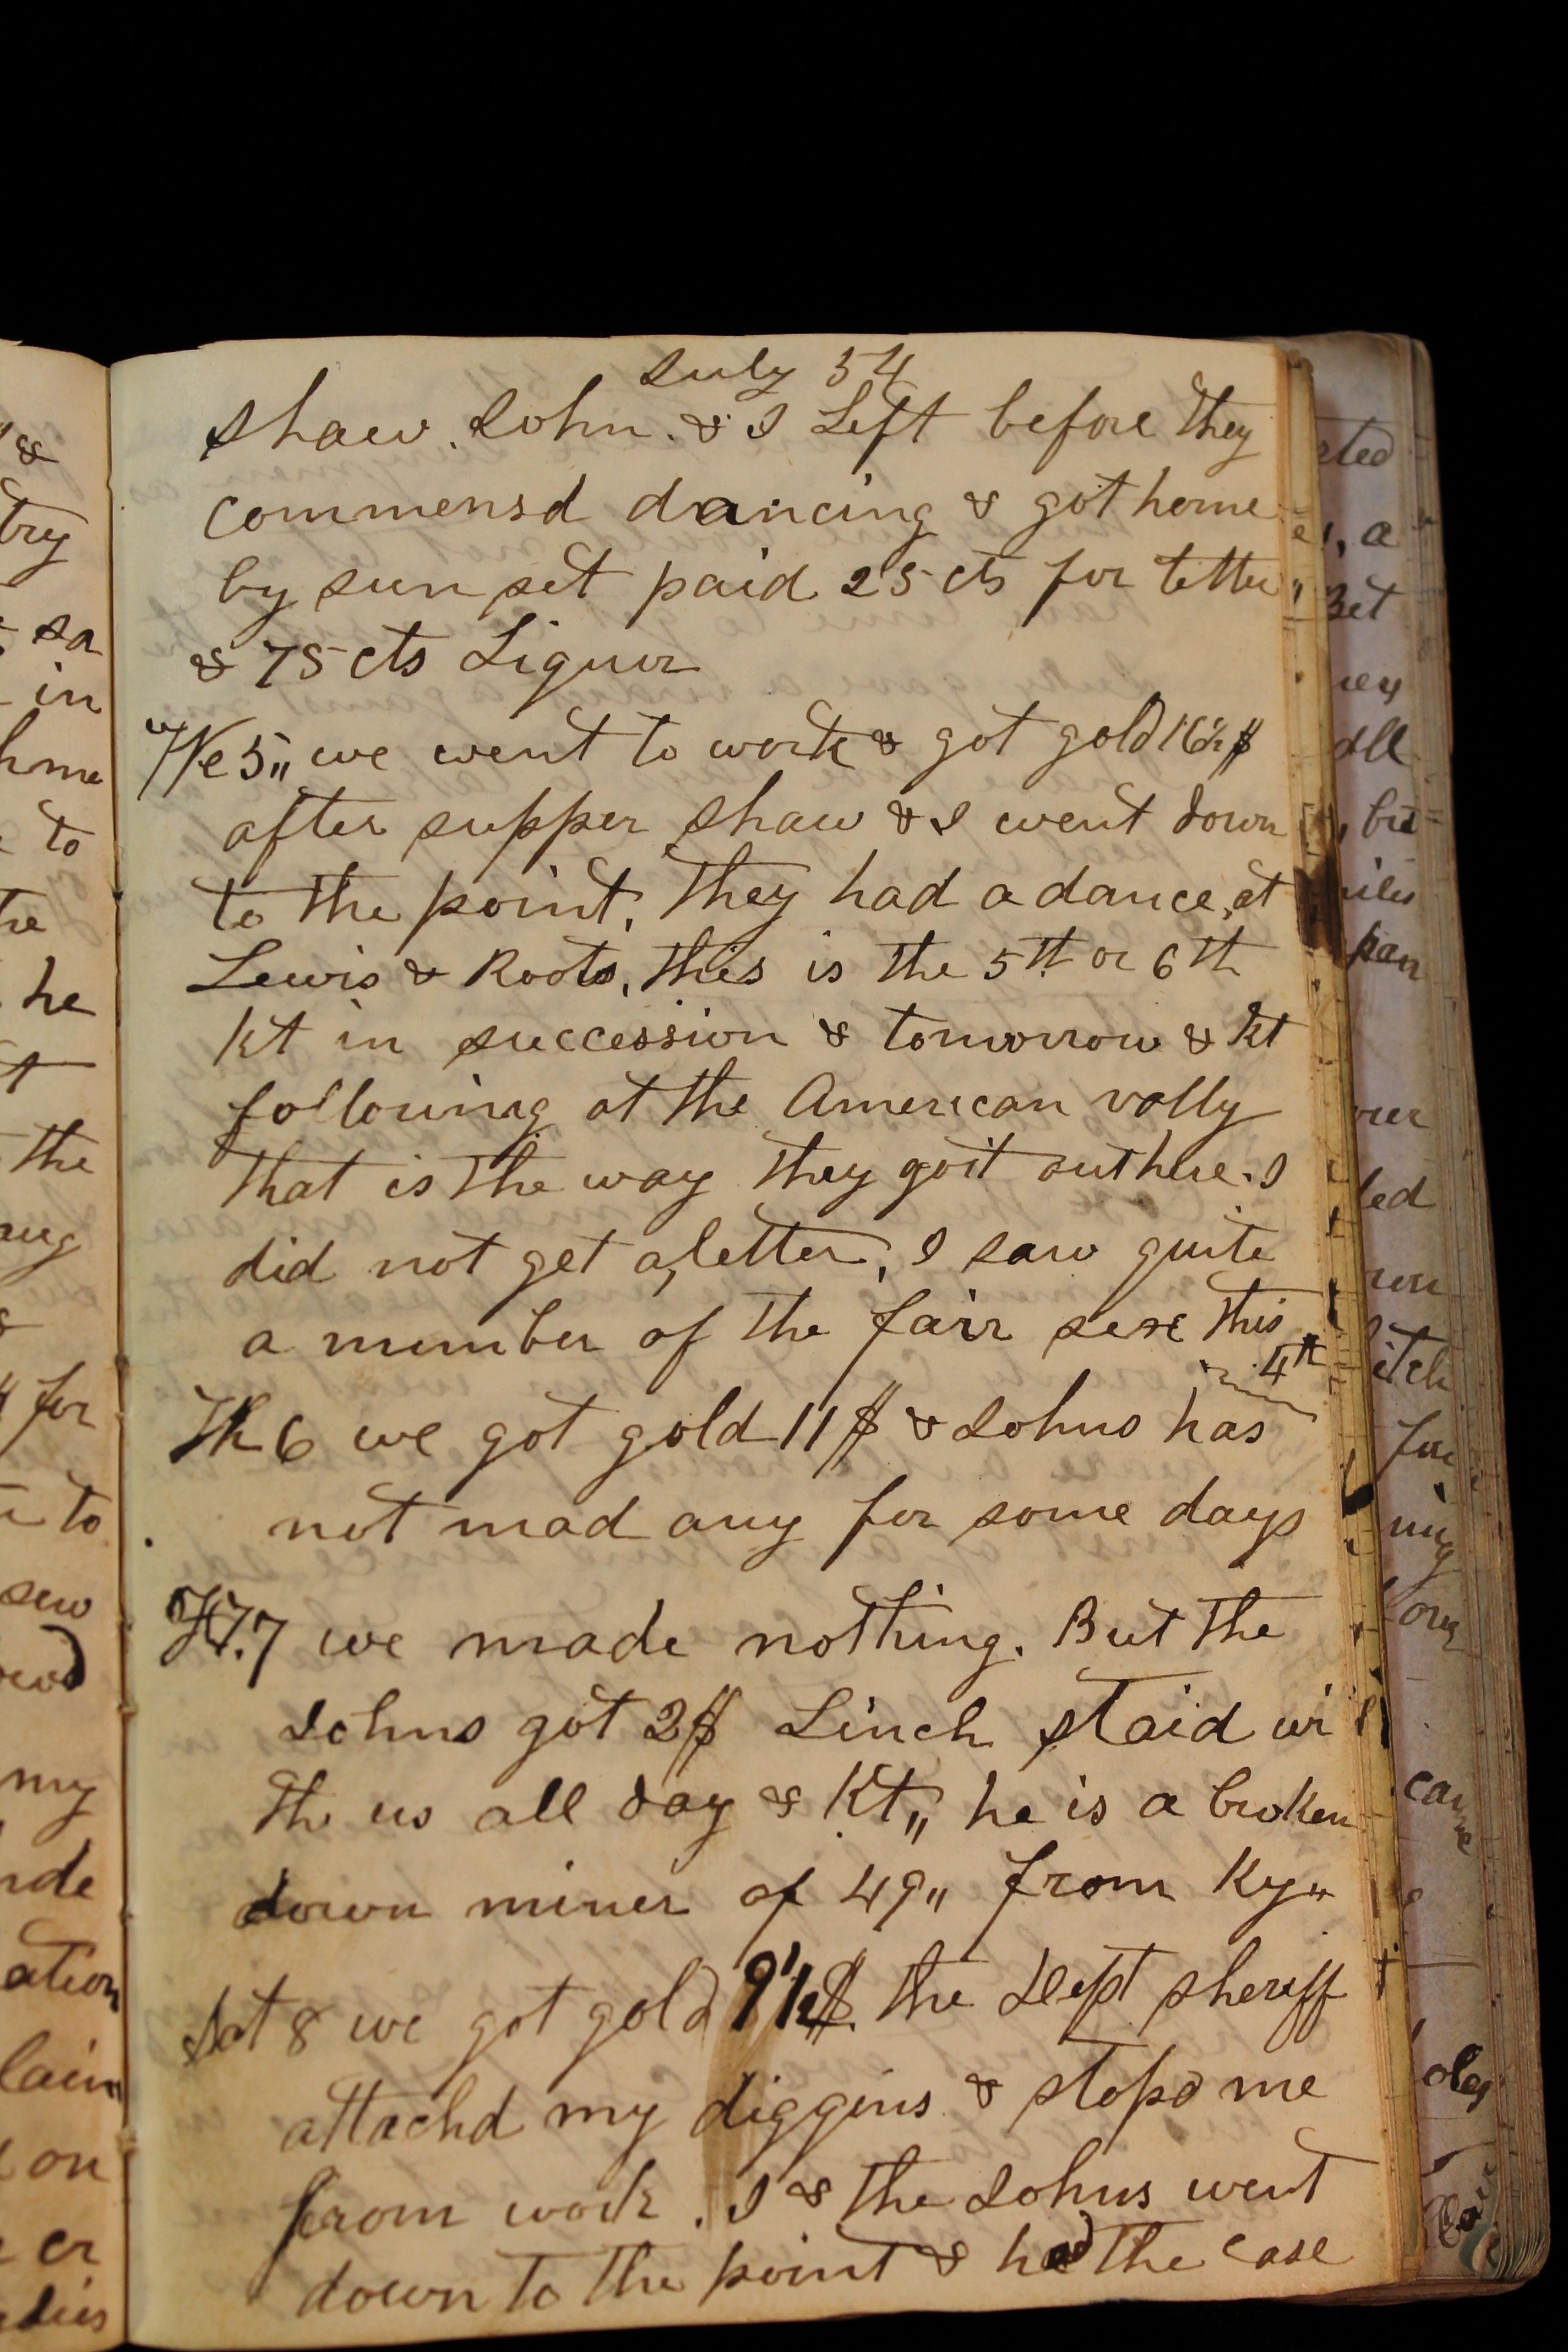 July 54
Shaw. John. & I Left before they
commensd dancing & got home
by sun set paid 25 cts for letter
& 75 cts Liquor
We 5,, we went to work & got gold 16½$
after supper Shaw & I went down
to the point, they had a dance, at
Lewis & Roots, this is the 5th or 6th
Kt in succession & tomorrow & Kt
following at the American vally
that is the way they go it out here. I
did not get a letter, I saw quite
a number of the fair sexe this
4th
Th 6 we got gold 11$ & Johns has
not mad any for some days
7 we made nothing. But the
Johns got 2$ Linch staid wi
th us all day & Kt,, he is a broken
down miner of 49,, from Ky,,
Sat 8 we got gold 9½$. the Dept sheriff
attachd my diggins & stopd me
from work. I & the Johns went
down to the point & had the case